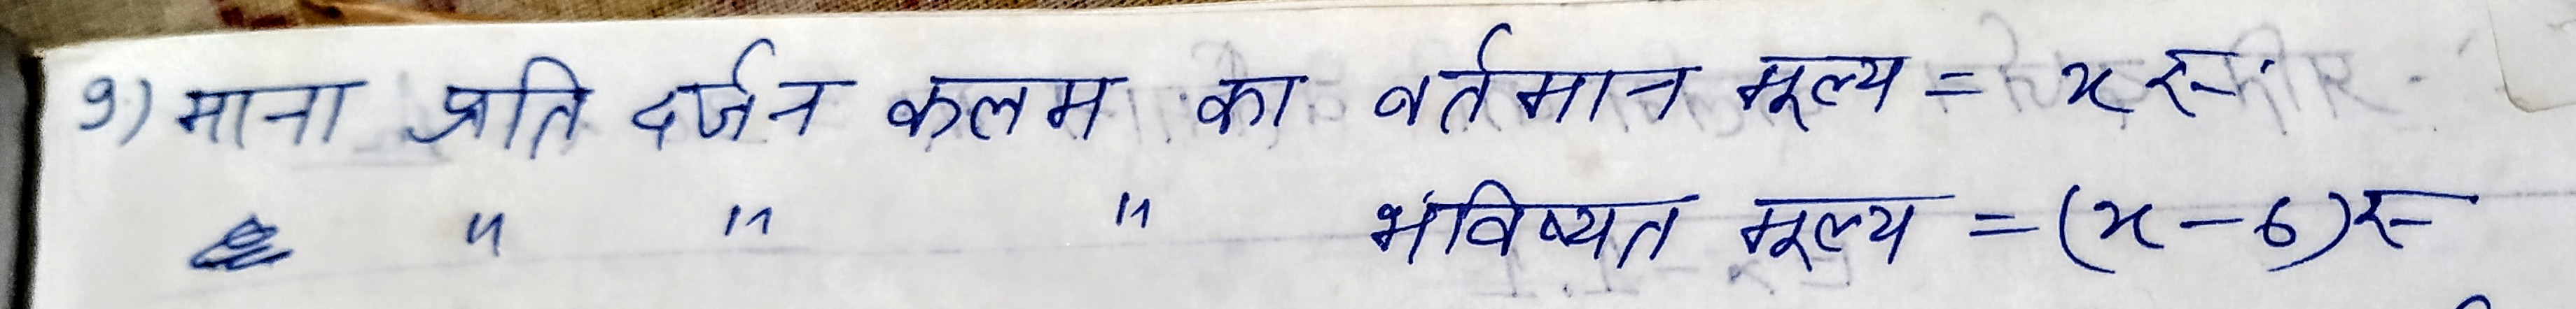 9) माना प्रति दर्जन कलम का वर्तमान मूल्य = x रू.
" " " भविष्यत मूल्य = (x - 6) रू